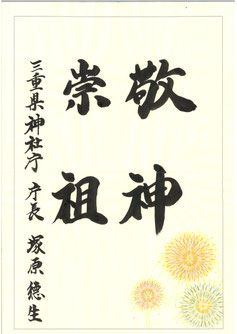 敬神
崇祖
三重県神社庁 庁長 塚原徳生